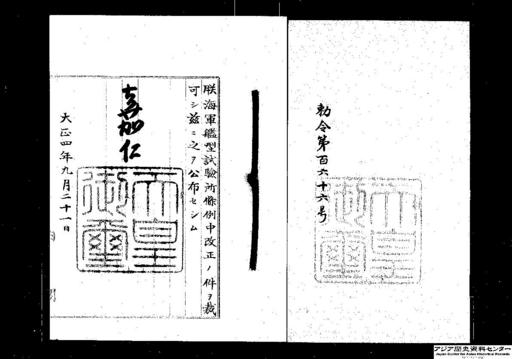 勅令第百六十六号
朕海軍艦型試驗所條例中改正ノ件ヲ裁
可シ茲ニ之ヲ公布セシム
嘉仁
天皇
御璽
大正四年九月二十一日
アジア歴史資料センター
Japan Center for Asian Historical Records